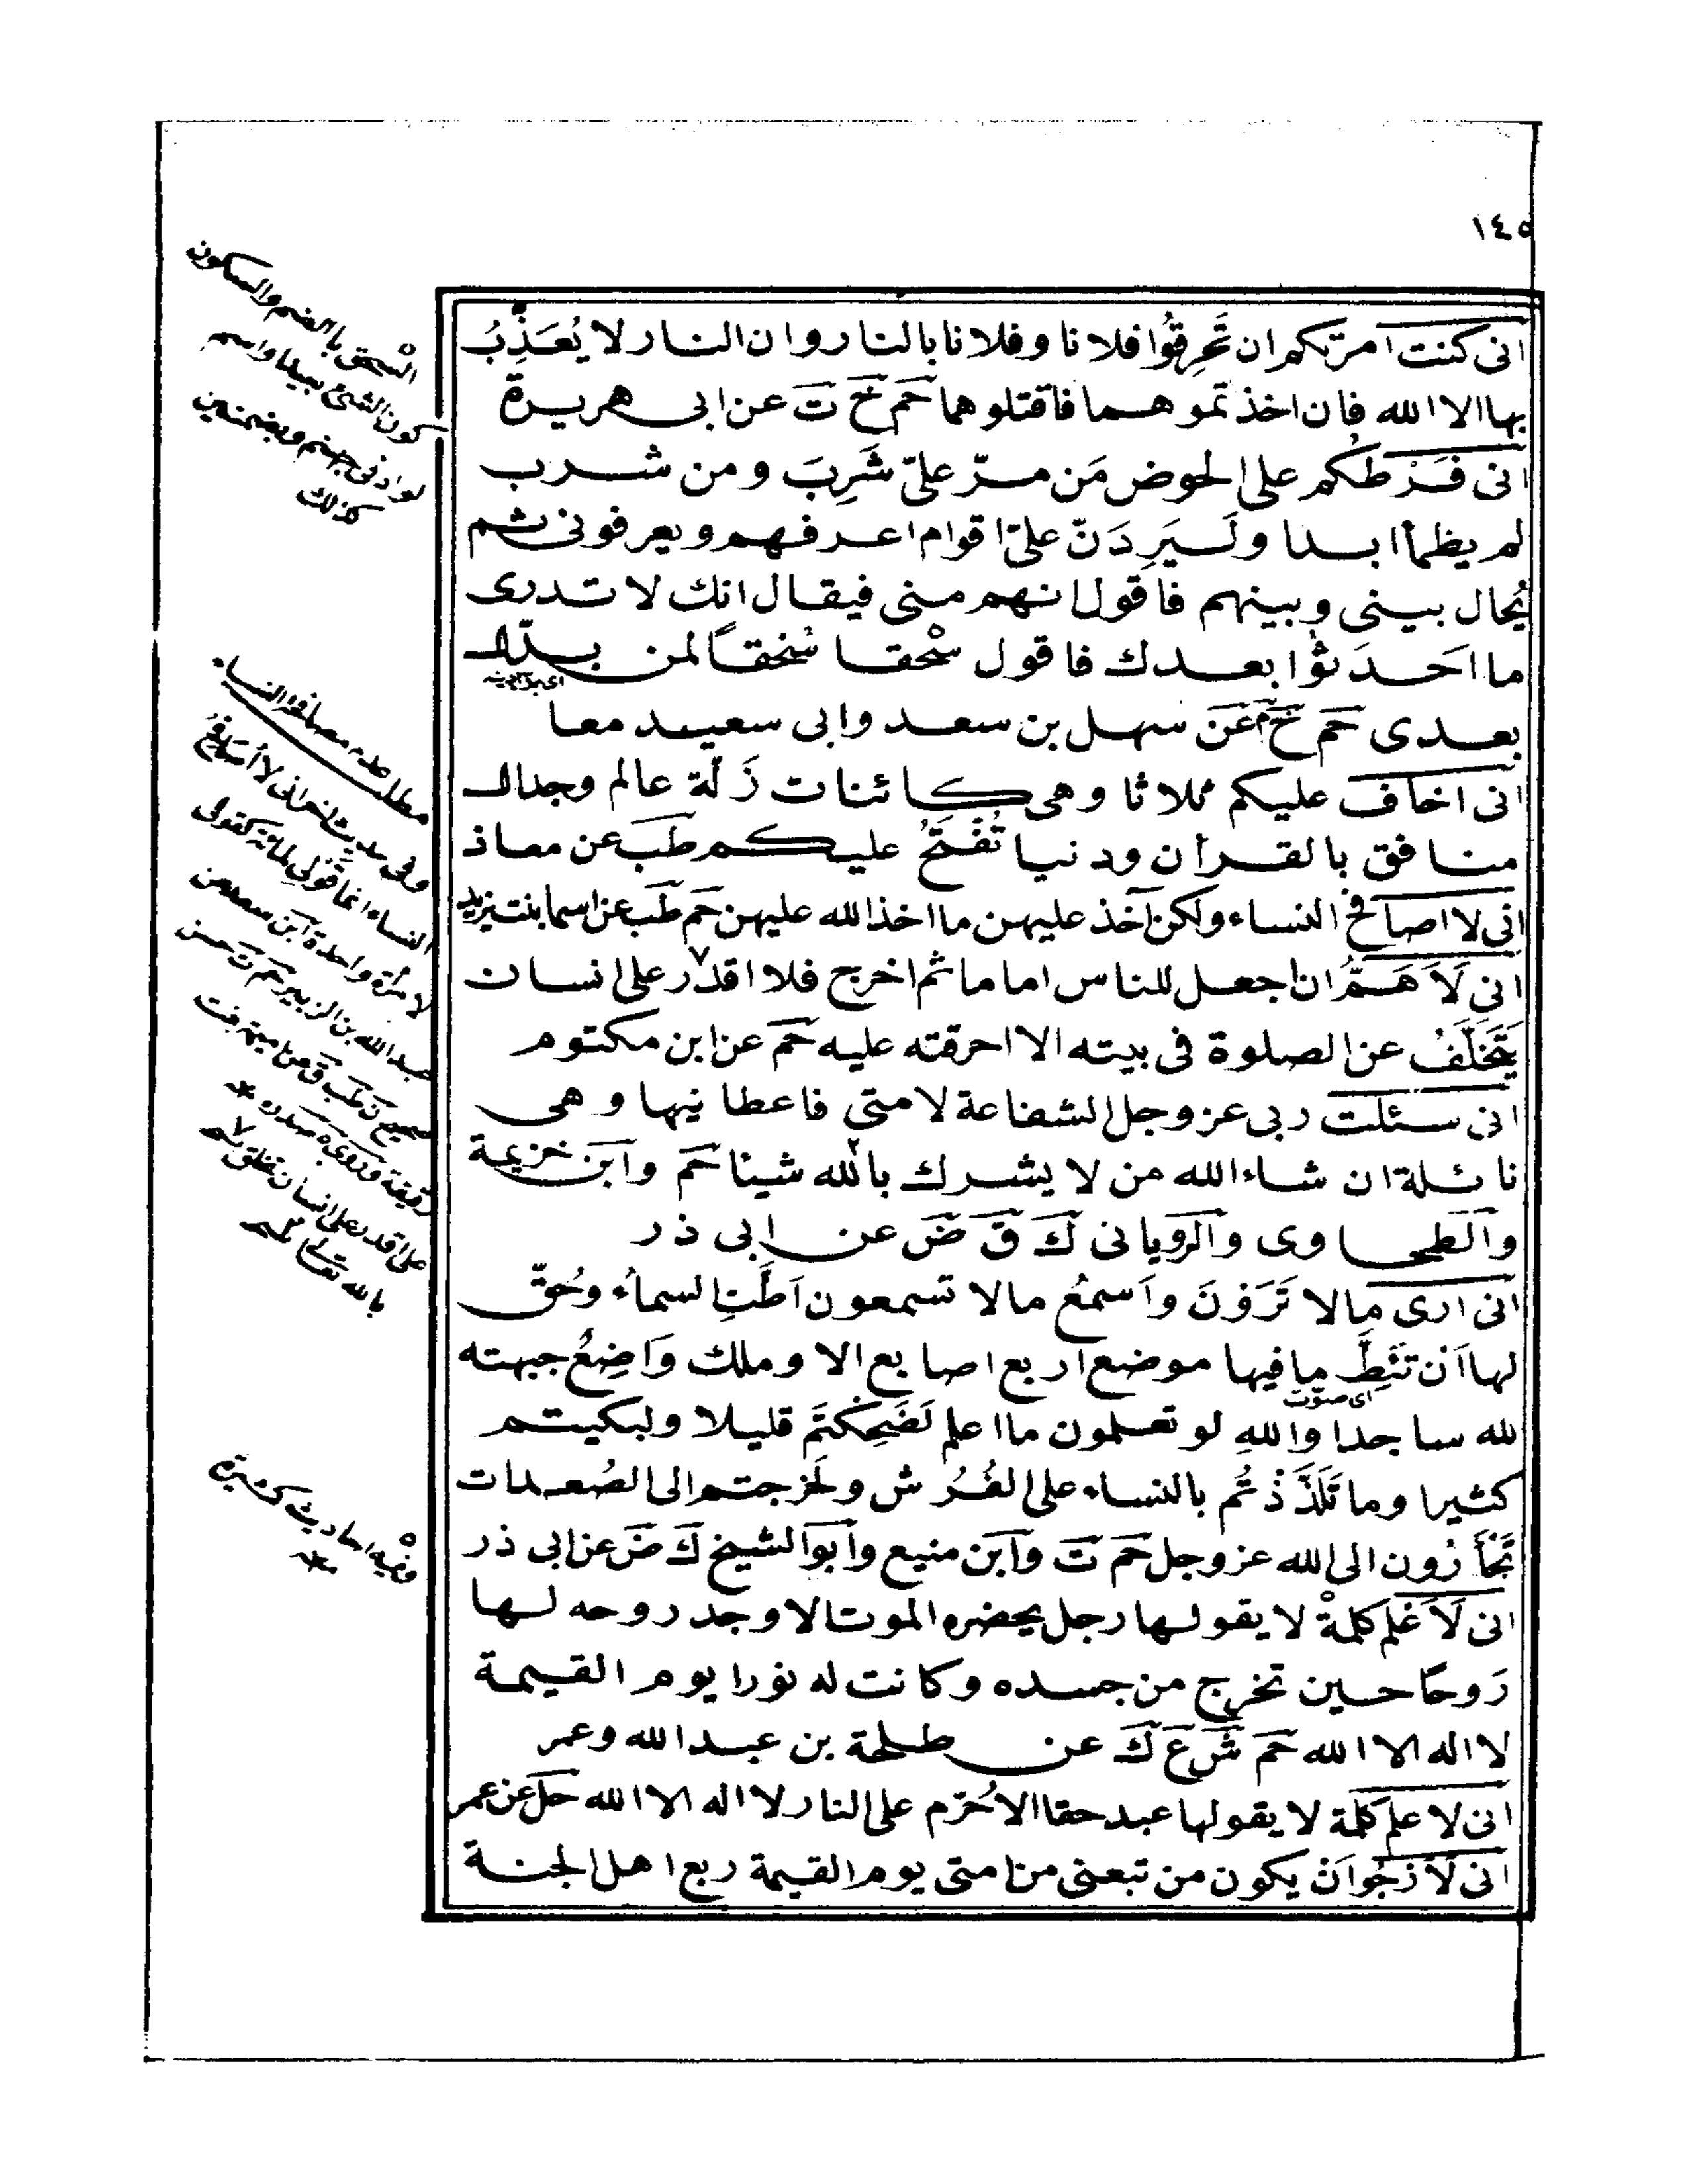 ١٤٥
انى كنت امرتكم ان تَحرِقُوا فلانا وفلانا بالنار وان النار لا يُعَذِّبُ
بها الا الله فان اخذتموهما فاقتلوهما حَم خ ت عن ابى هريرة
انى فَرَطُكم على الحوض مَن مرّ علىّ شَرِبَ ومن شرب
لم يظمأ ابدا ولَيَرِدَنّ علىّ اقوام اعرفهم ويعرفونى ثم
يُحال بينى وبينهم فاقول انهم منى فيقال انك لا تدرى
ما احدثوا بعدك فاقول سُحْقا سُحْقاً لمن بدّل
بعدى حَم خ م عن سهل بن سعد وابى سعيد معا
انى اخاف عليكم ثلاثا وهى كائنات زَلّة عالم وجدال
منافق بالقرأن ودنيا تُفْتَحُ عليكم طَب عن معاذ
انى لا اصافح النساء ولكن آخذ عليهن ما اخذ الله عليهن حَم طَب عن اسما بنت يزيد
انى لَاَهَمُّ ان اجعل للناس اماما ثم اخرج فلا اقدر على انسان
يَتَخَلَّفُ عن الصلوة فى بيته الا احرقته عليه حَم عن ابن مكتوم
انى سئلت ربى عز وجل الشفاعة لامتى فاعطانيها وهى
نائلة ان شاء الله من لا يشرك بالله شيئا حَم وابن خزيمة
والطحاوى والرويانى ك ق ض عن ابى ذر
انى ارى مالا تَرَوْنَ واَسمعُ مالا تسمعون اَطَّتِ السماءُ وحُقّ
لها اَن تَئِطَّ ما فيها موضع اربع اصابع الا وملك وَاضِعٌ جبهته
اى صوّت
لله ساجدا والله لو تعلمون ما اعلم لَضَحِكتم قليلا ولبكيتم
كثيرا وما تَلَذَّذْتُم بالنساء على الفُرُش ولخرجتم الى الصُعدات
تَجْأَرُون الى الله عز وجل حَم ت وابن منيع وابو الشيخ ك ض عن ابى ذر
انى لَاَعْلم كلمةْ لا يقولها رجل يحضره الموت الا وجد روحه لها
رَوحًا حين تخرج من جسده وكانت له نورا يوم القيمة
لا اله الا الله حَم ش ع ك عن طلحة بن عبد الله وعمر
انى لا علم كلمة لا يقولها عبد حقا الا حُرّم على النار لا اله الا الله حل عن عمر
انى لَاَرْجُوا ان يكون من تبعنى من امتى يوم القيمة ربع اهل الجنة
السُّحق بالضم والسكون
كون الشئ بعيدا واسم
لواد فى جهنم وبضمتين
كذلك
مطلب عدم مصافحة النساء
وفى حديث اخر انى لا أصافح
النساء انما قَوْلى لمائة كقولى
لامرأة واحدة ابن سعد عن
عبد الله بن الزبير حَم ت حسن
صحيح ن طب ق عن اميمة بنت
رقيقة
على انسان
بالله تعالى
وفيه احاديث كثيرة